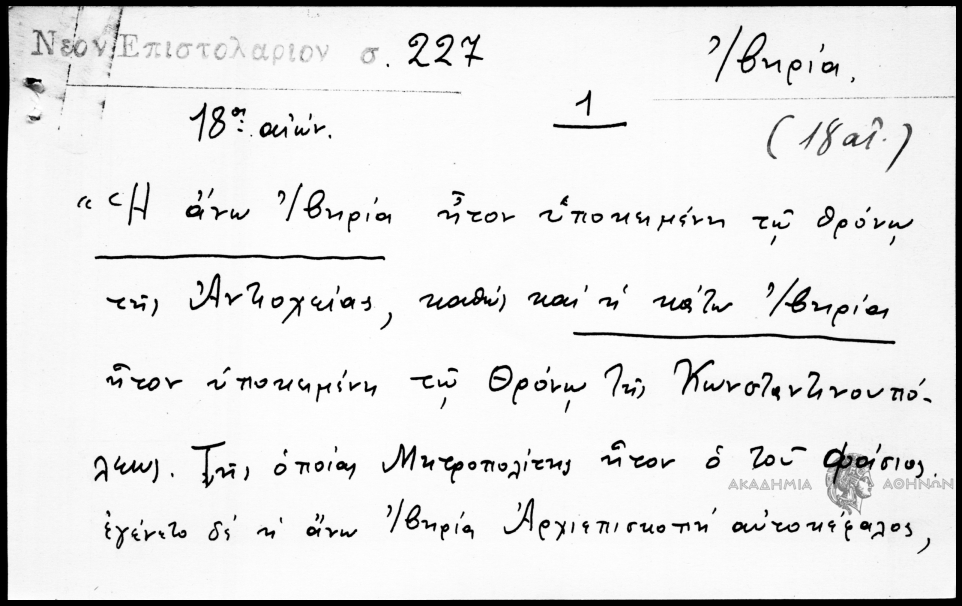 Νέον Ἐπιστολάριον σ. 227
Ἰβηρία.
18ος αἰών.
1
(18 αἰ.)
«Ἡ ἄνω Ἰβηρία ἦτον ὑποκειμένη τῷ θρόνῳ
τῆς Ἀντιοχείας, καθὼς καὶ ἡ κάτω Ἰβηρία
ἦτον ὑποκειμένη τῷ Θρόνῳ τῆς Κωνσταντινουπό-
λεως. Τῆς ὁποίας Μητροπολίτης ἦτον ὁ τοῦ Φάσιος.
ΑΚΑΔΗΜΙΑ ΑΘΗΝΩΝ
ἐγένετο δὲ ἡ ἄνω Ἰβηρία Ἀρχιεπισκοπὴ αὐτοκέφαλος,